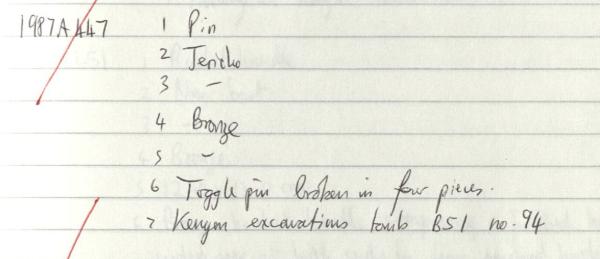 1987A447 1 Pin
2 Jericho
3 –
4 Bronze
5 –
6 Toggle pin broken in four pieces.
7 Kenyon excavations tomb B51 no. 94